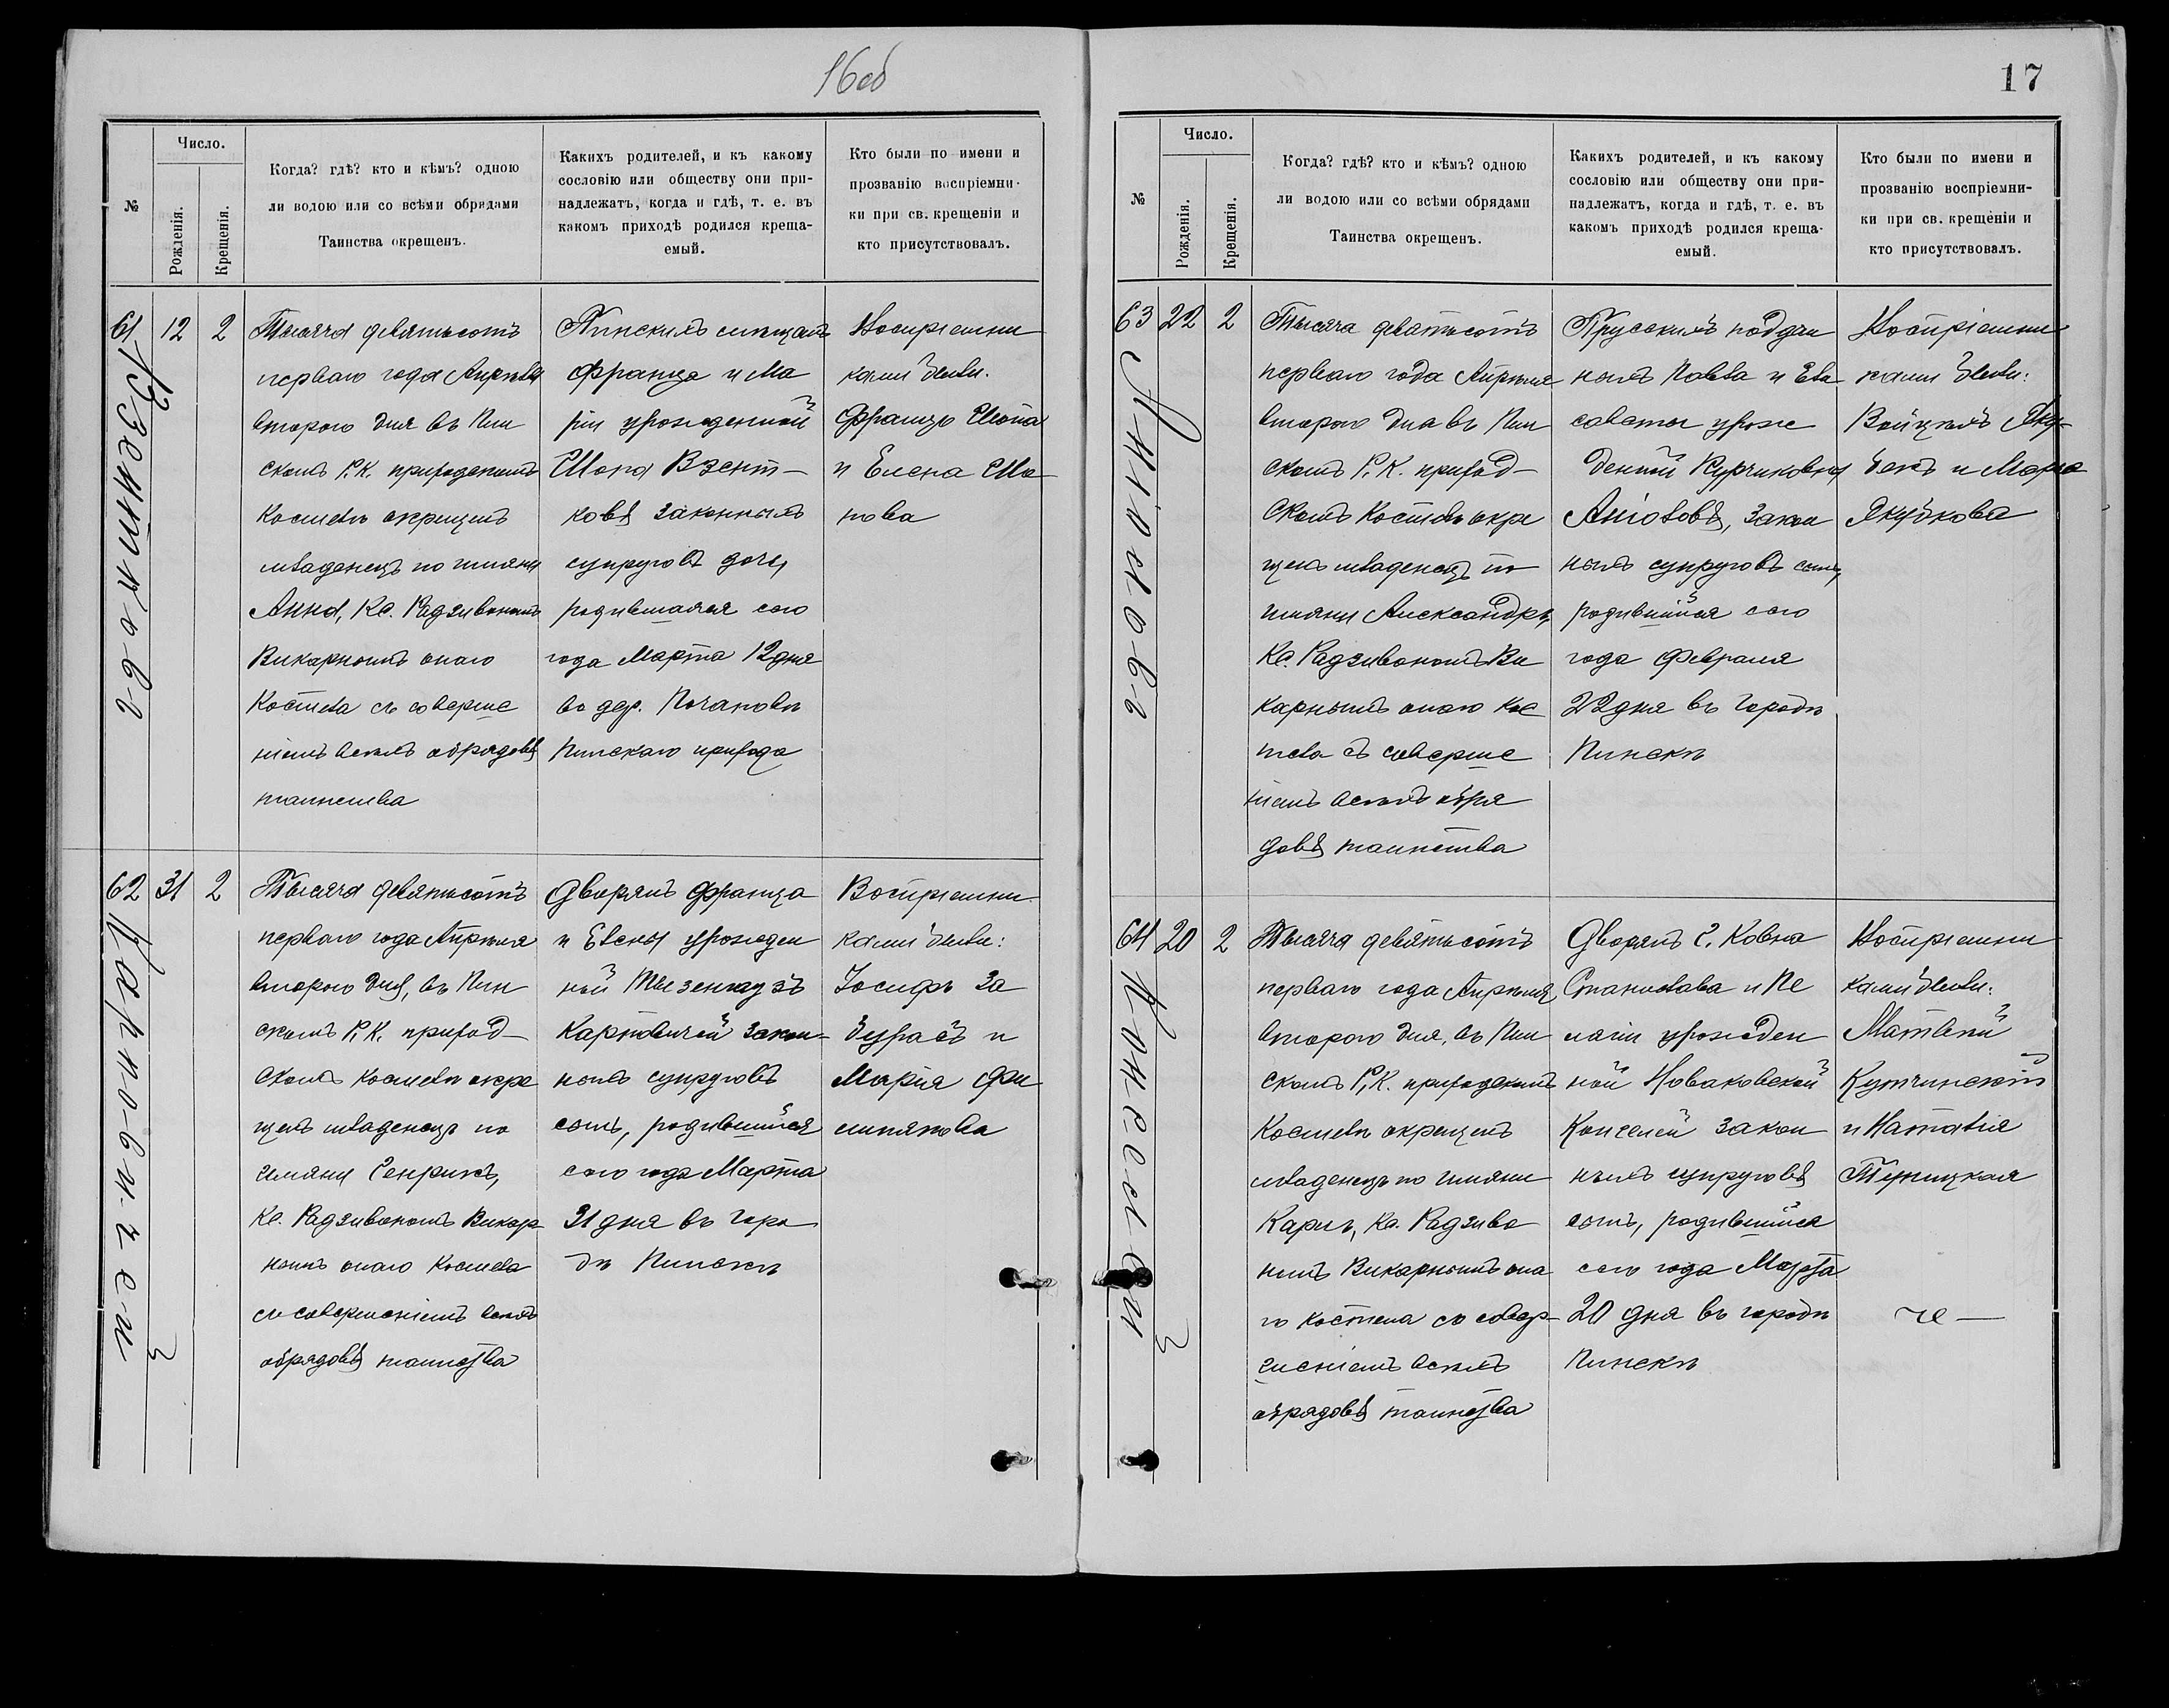 16об
№
Число.
Рожденія.
Крещенія.
Когда? гдѣ? кто и кѣмъ? одною
ли водою или со всѣми обрядами
Таинства окрещенъ.
Какихъ родителей, и къ какому
сословію или обществу они при-
надлежатъ, когда и гдѣ, т. е. въ
какомъ приходѣ родился креща-
емый.
Кто были по имени и
прозванію воспріемни-
ки при св. крещеніи и
кто присутствовалъ.
61 12 2
Тысяча девятьсотъ
перваго года Апрѣля
второго дня въ Пин
скомъ Р. К. приходскомъ
Костелѣ окрещенъ
младенецъ по имяни
Анна, Кс. Радзивономъ
Викарнымъ онаго
Костела съ соверше
ніемъ всѣхъ обрядовъ
таинства
Пинскихъ мѣщанъ
Франца и Ма
ріи урожденной
Шона Вэент-
ковъ законныхъ
супруговъ дочь,
родившаяся сего
года Марта 12 дня
въ дер. Почаповѣ
Пинскаго прихода
Воспріемни
ками были:
Францъ Шопа
и Елена Шо
пова
62 31 2
Карповичей
Тысяча девятьсотъ
перваго года Апрѣля
второго дня, въ Пин
скомъ Р. К. приход-
скомъ костелѣ окре
щенъ младенецъ по
имяни Генрикъ,
Кс. Радзивономъ Викар
нымъ онаго Костела
съ совершеніемъ всѣхъ
обрядовъ таинства
Дворянъ Франца
и Елены урожден
ной Тызенгаузъ
Карповичей закон-
ныхъ супруговъ
сынъ, родившійся
сего года Марта
31 дня въ горо
дѣ Пинскѣ
Воспріемни
ками были:
Іосифъ За
бурасъ и
Марія Фи
липпова
17
№
Число.
Рожденія.
Крещенія.
Когда? гдѣ? кто и кѣмъ? одною
ли водою или со всѣми обрядами
Таинства окрещенъ.
Какихъ родителей, и къ какому
сословію или обществу они при-
надлежатъ, когда и гдѣ, т. е. въ
какомъ приходѣ родился креща-
емый.
Кто были по имени и
прозванію воспріемни-
ки при св. крещеніи и
кто присутствовалъ.
63 22 2
Тысяча девятьсотъ
перваго года Апрѣля
второго дня въ Пин
скомъ Р. К. приход-
скомъ Костелѣ окре
щенъ младенецъ по
имяни Александръ,
Кс. Радзивономъ Ви
карнымъ онаго Кос
тела съ соверше
ніемъ всѣхъ обря
довъ таинства
Прусскихъ поддан
ныхъ Павла и Ели
саветы урож
денной Курчиковны
закон
ныхъ супруговъ сынъ,
родившійся сего
года Февраля
22 дня въ городѣ
Пинскѣ
Воспріемни
ками были:
Войцехъ Яку-
бекъ и Марія
Якубкова
64 20 2
Тысяча девятьсотъ
перваго года Апрѣля
второго дня, въ Пин
скомъ Р. К. приходскомъ
Костелѣ окрещенъ
младенецъ по имяни
Карлъ, Кс. Радзиво
номъ Викарнымъ она
го костела съ совер-
шеніемъ всѣхъ
обрядовъ таинства
Дворянъ г. Ковна
Станислава и Пе
лагіи урожден
ной Новаковской
законн
ныхъ супруговъ
сынъ, родившійся
сего года Марта
20 дня въ городѣ
Пинскѣ
Воспріемни
ками были:
Матвѣй
Купчинскій
и Наталія